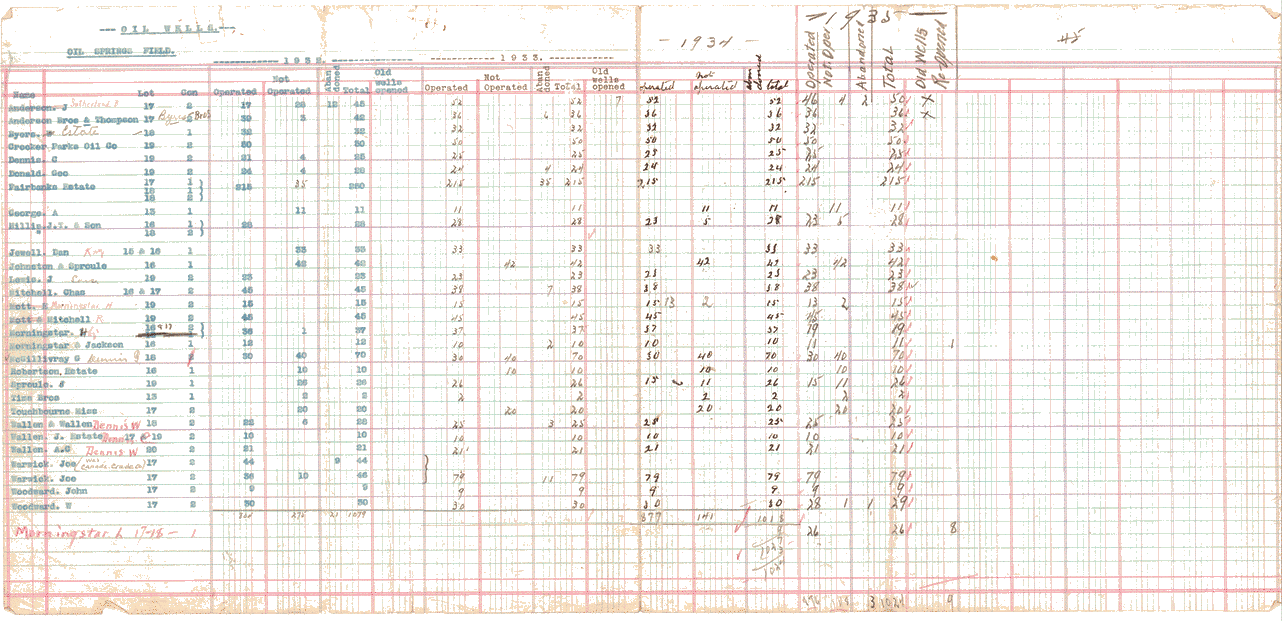 ---OIL WELLS.---
OIL SPRINGS FIELD.
1932. 1933. - 1934 - - 1935 -
Name Lot Con Operated Not Operated Abandoned Total Old wells opened Operated Not Operated Abandoned Total Old wells opened operated not operated abandoned total Operated Not Oper Abandoned Total Old Wells Re-opened
Anderson. J Sutherland. D 17 2 17 28 12 45 52 52 7 52 52 46 4 2 50 X
Anderson Bros & Thompson 17 Byers Bros 39 3 42 36 6 36 36 36 36 36 X
Byers. Estate 18 1 32 32 32 32 32 32 32 32
Crocker Parks Oil Co 19 2 50 50 50 50 50 50 50 50
Dennis. C 19 2 21 4 25 25 25 25 25 25 25
Donald. Geo 19 2 24 4 28 24 4 24 24 24 24 24
Fairbanks Estate 17 1 215 35 250 215 35 215 215 215 215 215
18 1
18 2
George. A 13 1 11 11 11 11 11 11 11 11
Hillis J.Y. & Son 16 1 28 28 28 28 23 5 28 23 5 28
18 2
Jewell. Dan 15 & 16 1 33 33 33 33 33 33 33 33
Johnston & Sproule 16 1 42 42 42 42 42 42 42 42
Lewis. J 19 2 23 23 23 23 23 23 23 23
Mitchell. Chas 16 & 17 2 45 45 38 7 38 38 38 38 38
Mott. Morningstar. H 19 2 15 15 15 15 15 13 2 15 13 2 15
Mott & Mitchell 19 2 45 45 45 45 45 45 45 45
Morningstar. 16 & 17 2 36 1 37 37 37 37 37 19 19
Morningstar & Jackson 18 1 12 12 10 2 10 10 10 11 11 1
McGillivray G 18 2 30 40 70 30 40 70 30 40 70 30 40 70
Robertson, Estate 16 1 10 10 10 10 10 10 10 10
Sproule. S 19 1 26 26 26 26 15 11 26 15 11 26
Tine Bros 13 1 2 2 2 2 2 2 2 2
Touchbourne Miss 17 2 20 20 20 20 20 20 20 20
Wallen & Wallen Dennis W 18 2 22 6 28 25 3 25 25 25 25 25
Wallen. J. Estate 17 & 19 2 10 10 10 10 10 10 10 10
Wallen. A.G Dennis W 20 2 21 21 21 21 21 21 21 21
Warwick. Joe (was Canada Crude Co) 17 2 44 9 44
Warwick. Joe 17 2 36 10 46 79 11 79 79 79 79 79
Woodward. John 17 2 9 9 9 9 9 9 9 9
Woodward. W 17 2 30 30 30 30 30 30 28 1 1 29
21 1079 877 141 1018
Morningstar L 17-18 - 1 26 26 8
3 1024 9